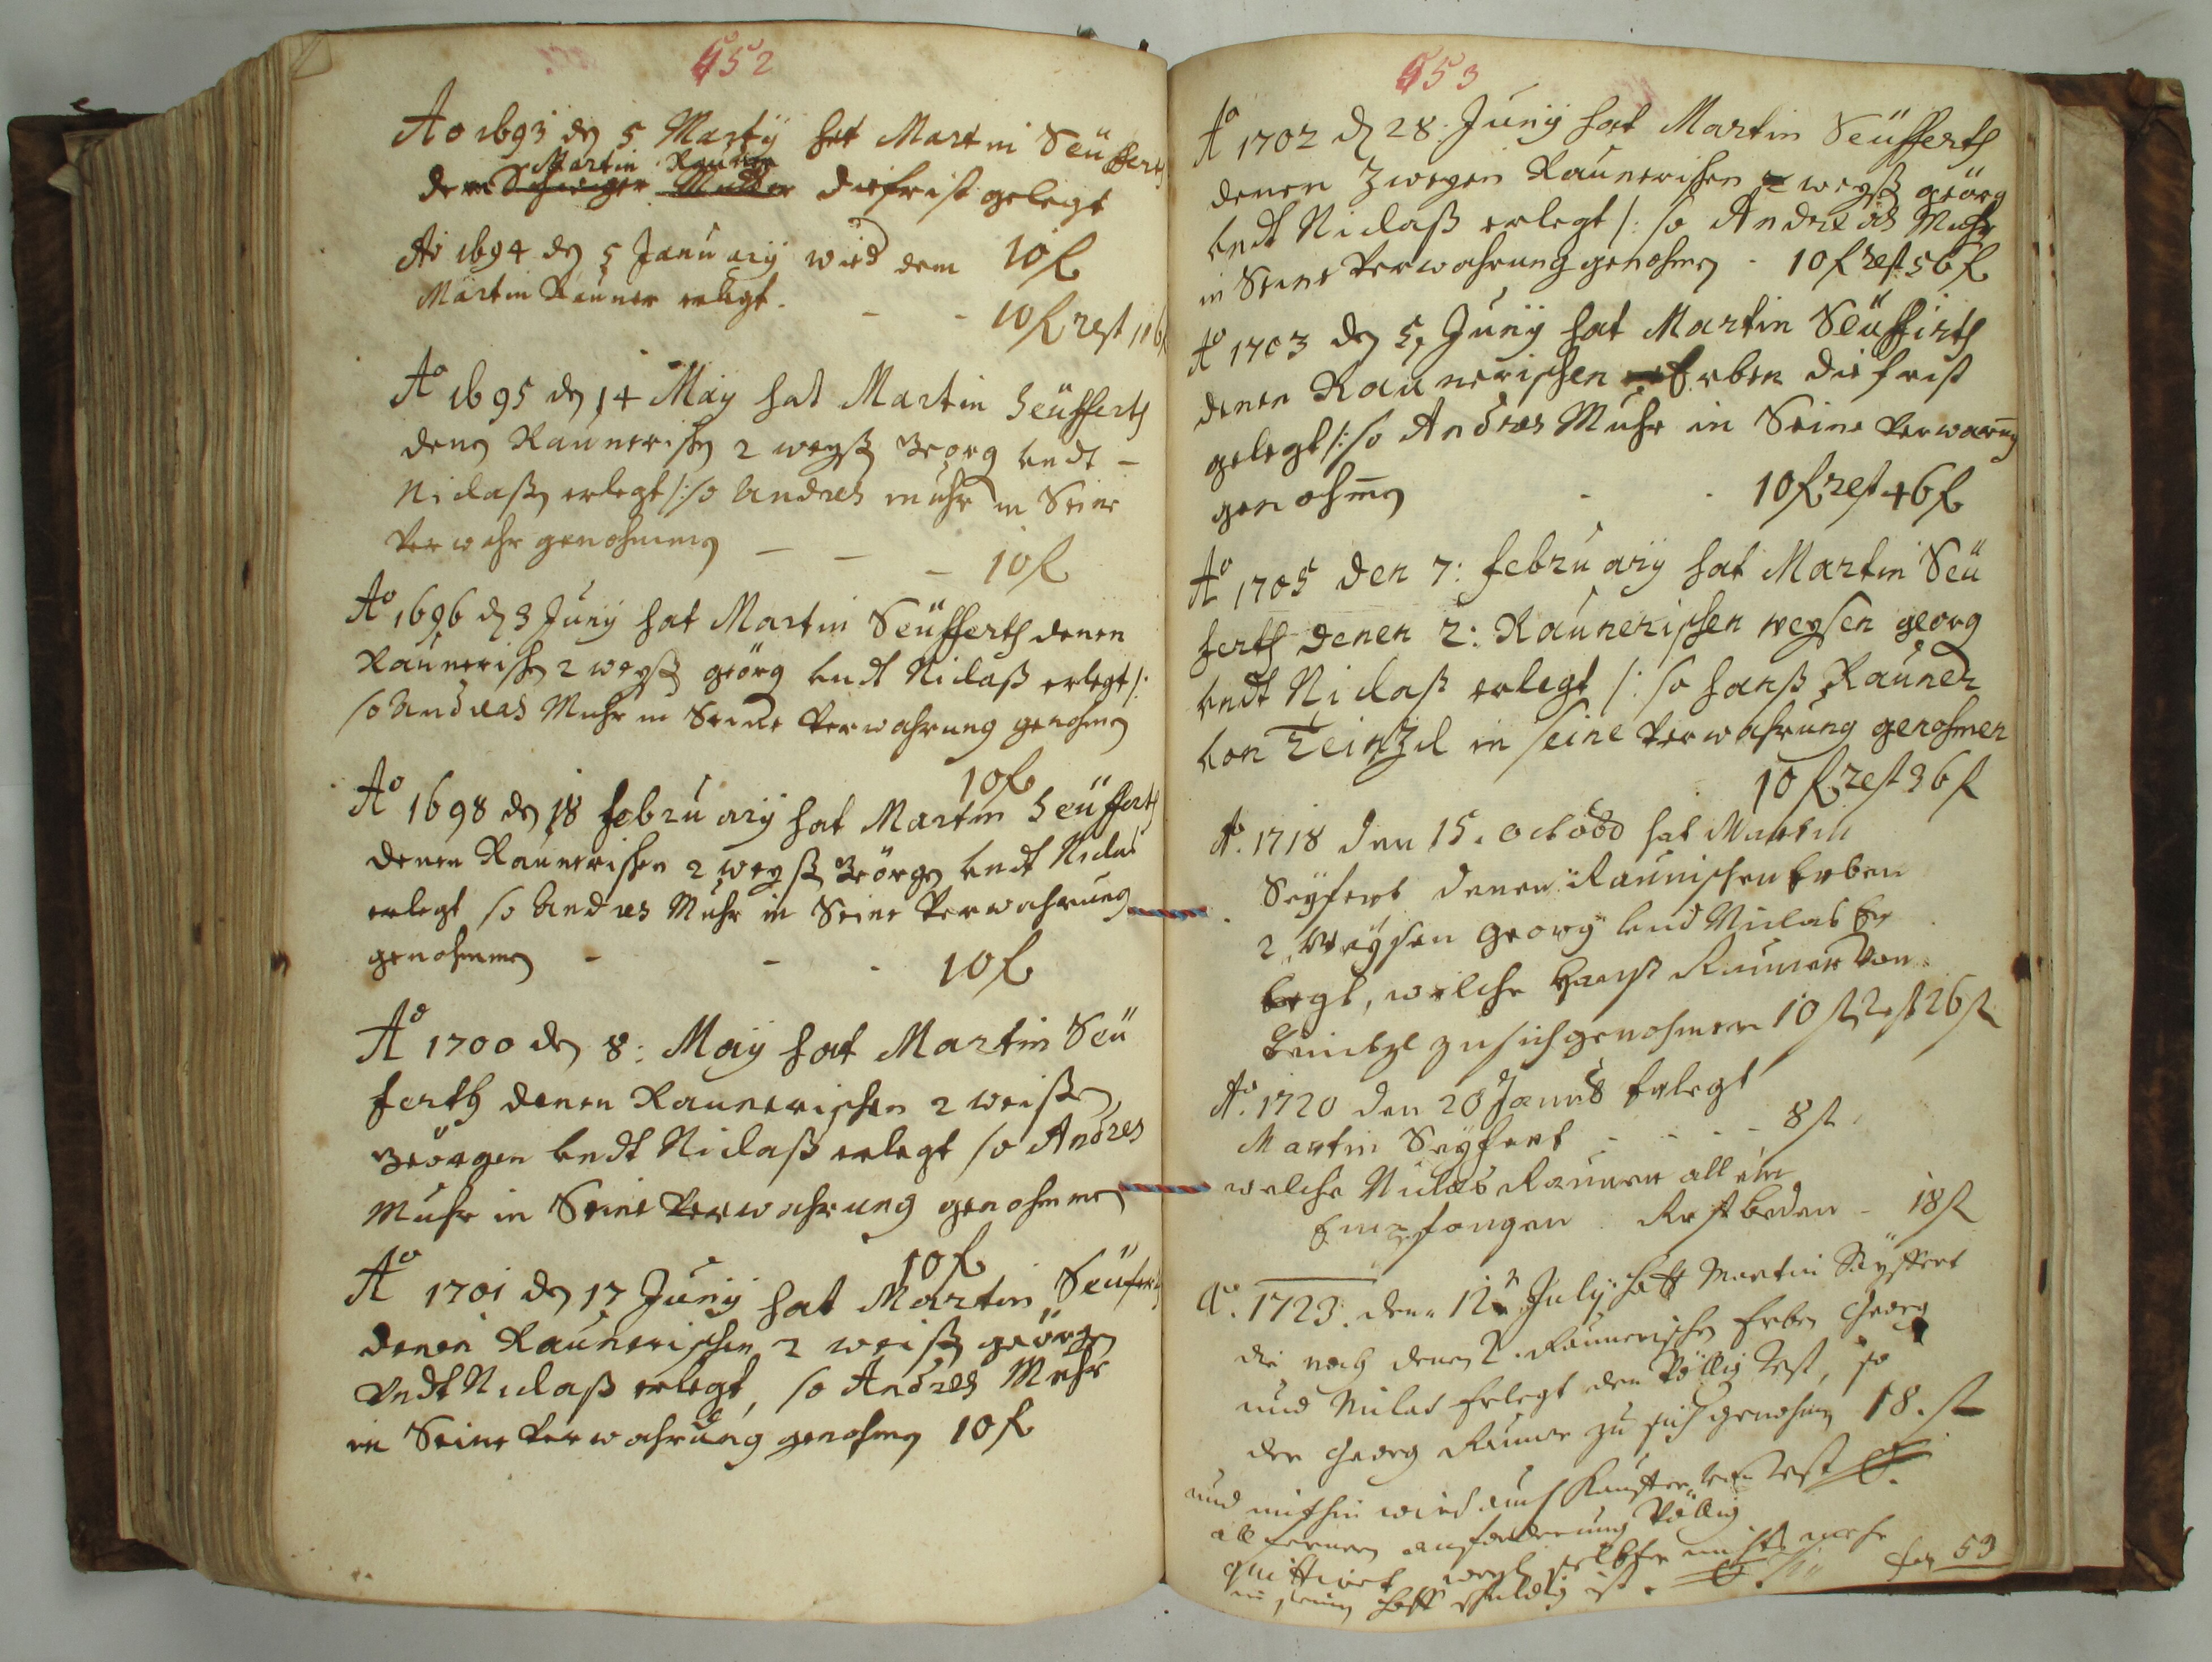 652
Ao 1693 dẽ 5 Martÿ hat Martin Seüfferth
Martin Rauner
dem Schwiger Mutter die frist gelegt
10 f
Ao 1694 dẽ 5 Januarÿ wird dem
Martin Rauner erlegt - - 10 f rest 116
Ao 1695 dẽ 14 Maÿ hat Martin Seüfferth
denẽ Raunerischẽ 2 weÿsẽ Georg vndt
Niclaßẽ erlegt /: so Andres Muhr in Seine
Verwahr genohmmẽ - - - 10 f
Ao 1696 dẽ 3 Junÿ hat Martin Seüfferth denen
Raunerischẽ 2 weÿsẽ geörg vndt Niclaß erlegt /:
so Andreas Muhr in Seine Verwahrung genohmẽ
10 f
Ao 1698 dẽ 18 februarÿ hat Martin Seüfferth
denen Raunerischen 2 weÿsẽ Geörgẽ vndt Niclas
erlegt so Andres Muhr in Seine Verwahrung
genohmmẽ - - - 10 f
Ao 1700 dẽ 8: Maÿ hat Martin Seü
ferth denen Raunerischen 2 weißẽ
Geörgen vndt Niclaß erlegt so Andres
Muhr in Seine Verwahrung genohmmẽ
10 f
Ao 1701 dẽ 17 Junÿ hat Martin Seüferth
denen Raunerischen 2 weißẽ geörgẽ
Vndt Niclaß erlegt, so Andres Muhr
in Seine Verwahrung genohmẽ 10 f
653
Ao 1702 dẽ 28. Junÿ hat Martin Seüfferth
denen Zweÿen Raunerischen weÿsẽ geörg
vndt Niclaß erlegt /: so Andreas Muhr
in Seine Verwahrung genohmẽ - 10 f rest 56 f
Ao 1703 dẽ 5, Junÿ hat Martin Seüffirth
denen Raunerischen Erben die frist
gelegt /: so Andres Muhr in Seine Verwarũg
genohm̃ẽ - - 10 f rest 46 f
Ao 1705 den 7: februarÿ hat Martin Seü
ferth denen 2: Raunerischen weÿsen georg
vndt Niclaß erlegt /: so hanß Rauner
von Teinzel in seine Verwahrung genohmen
10 f rest 36 f
Ao. 1718 den 15. Octobr hat Martin
Seÿfert denen Raunischen Erben
2 Weÿsen Georg vnd Niclas Er
legt, welche Hanß Rauner Von
Teintzl zu sich genohmen 10 f Rest 26 f
Ao. 1720 den 20 Januar Erlegt
Martin Seÿfert - - - - 8 f
welche Niclas Rauner allein
Empfangen. Rest beeden - 18 f
Ao. 1723. den 12n Julÿ hatt Martin Seÿffert
die noch denen 2 Raunerischẽ Erben Georg
und Niclas Erlegt den Völlig Rest, so
der Georg Rauner zu sich genohmẽ 18. f
und mithin wird auch Kauffer Rest
all fernern anforderung Völlig
quittiret, weyl selbter nichts mehr
schuldig ist.
fol 53